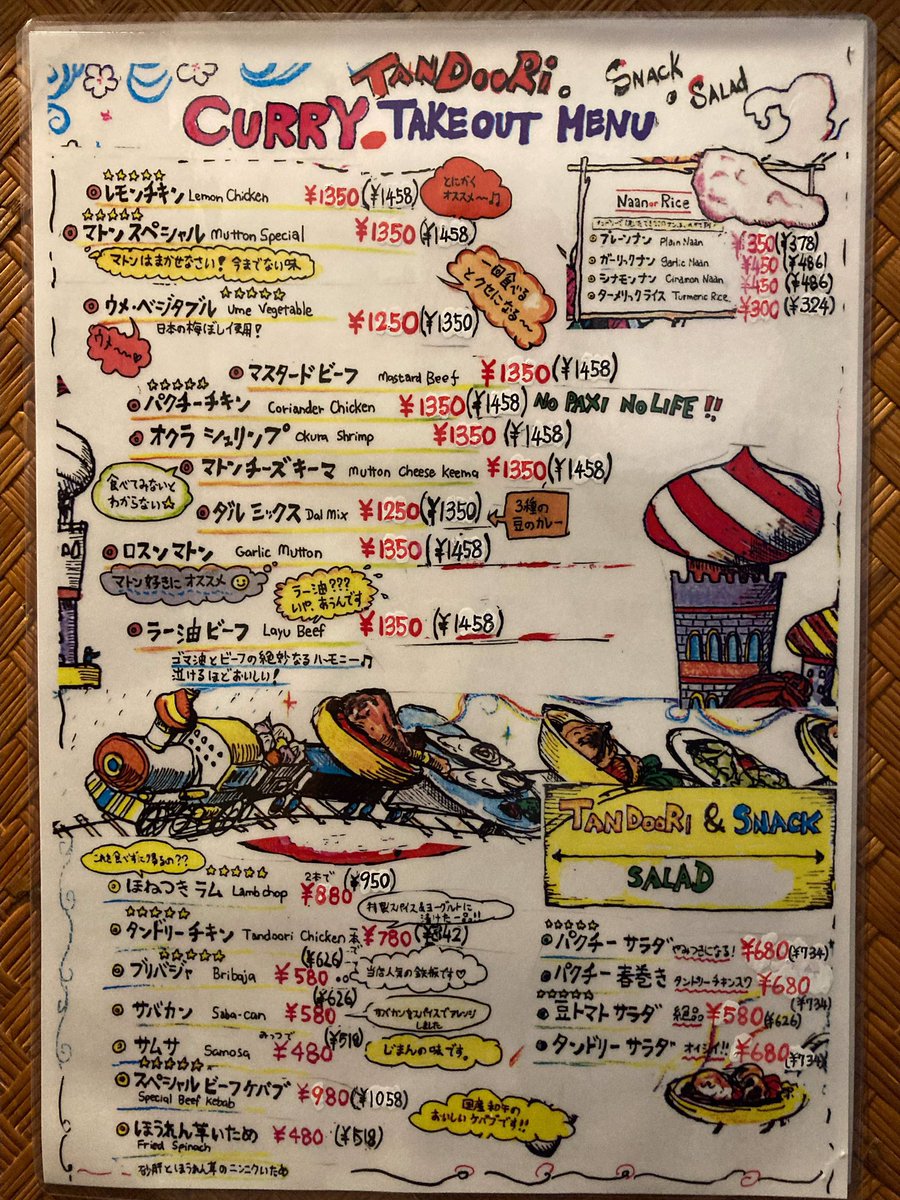 TANDOORi.
SNACK
. SALAD
CURRY. TAKEOUT MENU
レモンチキン Lemon Chicken ¥1350(¥1458)
とにかく
オススメ〜♫
マトンスペシャル Mutton Special ¥1350(¥1458)
マトンはまかせなさい! 今までない味
一回食べる
とクセになる〜
ウメ・ベジタブル Ume Vegetable ¥1250(¥1350)
日本の梅ぼし使用!
ウメ〜
マスタードビーフ Mastard Beef ¥1350(¥1458)
パクチーチキン Coriander Chicken ¥1350(¥1458) NO PAXI NO LIFE!!
オクラ シュリンプ Okura Shrimp ¥1350(¥1458)
マトンチーズキーマ Mutton Cheese Keema ¥1350(¥1458)
食べてみないと
わからない☆
ダルミックス Dal Mix ¥1250(¥1350)
3種の
豆のカレー
ロスンマトン Garlic Mutton ¥1350(¥1458)
マトン好きにオススメ
ラー油???
いや、あうんです
ラー油ビーフ Layu Beef ¥1350(¥1458)
ゴマ油とビーフの絶妙なるハーモニー♫
泣けるほどおいしい!
Naan or Rice
プレーンナン Plain Naan ¥350(¥378)
ガーリックナン Garlic Naan ¥450(¥486)
シナモンナン Cinamon Naan ¥450(¥486)
ターメリックライス Turmeric Rice ¥300(¥324)
TANDOORi & SNACK
SALAD
これを食べずに帰るの??
ほねつきラム Lamb chop 2本で ¥880(¥950)
特製スパイス&ヨーグルトに
漬けた一品!!
タンドリーチキン Tandoori Chicken 一本 ¥780(¥842)
ブリバジャ Bribaja ¥580(¥626)
当店人気の鉄板です♡
サバカン Saba-can ¥580(¥626)
サバカンをスパイスでアレンジ
しました
サムサ Samosa みっつで ¥480(¥518)
じまんの味です。
スペシャルビーフケバブ ¥980(¥1058)
Special Beef Kebab
国産和牛の
おいしいケバブです!!
ほうれん草いため ¥480(¥518)
Fried Spinach
砂肝とほうれん草のニンニクいため
パクチーサラダ やみつきになる! ¥680(¥734)
パクチー春巻き タンドリーチキン入り ¥680(¥734)
豆トマトサラダ 絶品 ¥580(¥626)
タンドリーサラダ オイシイ!! ¥680(¥734)